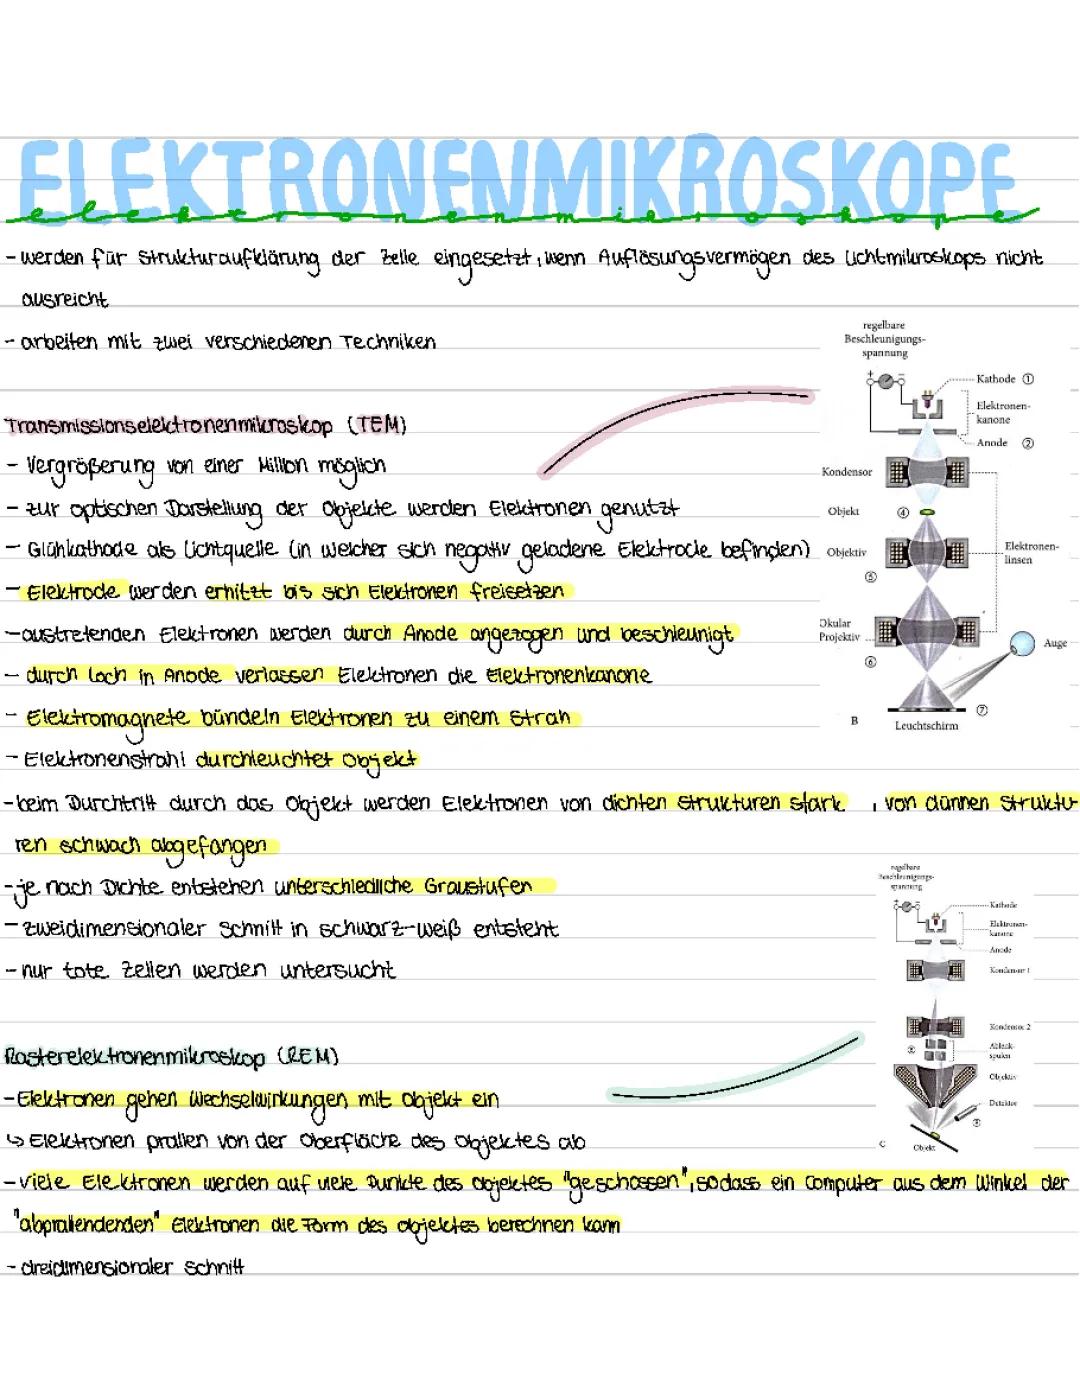 ELEKTRONENMIKROSKOPE
elektronenmikroskope
- werden für Strukturaufklärung der Zelle eingesetzt, wenn Auflösungsvermögen des Lichtmikroskops nicht
ausreicht
- arbeiten mit zwei verschiedenen Techniken
regelbare
Beschleunigungs-
spannung
+ -
Kathode ①
Elektronen-
kanone
Anode ②
Kondensor
Objekt ④
Objektiv
⑤
Elektronen-
linsen
Okular
Projektiv
⑥
Auge
⑦
B
Leuchtschirm
Transmissionselektronenmikroskop (TEM)
- Vergrößerung von einer Million möglich
- zur optischen Darstellung der Objekte werden Elektronen genutzt
- Glühkathode als Lichtquelle (in welcher sich negativ geladene Elektrode befinden)
- Elektrode werden erhitzt bis sich Elektronen freisetzen
- austretenden Elektronen werden durch Anode angezogen und beschleunigt
- durch Loch in Anode verlassen Elektronen die Elektronenkanone
- Elektromagnete bündeln Elektronen zu einem Strah
- Elektronenstrahl durchleuchtet Objekt
- beim Durchtritt durch das Objekt werden Elektronen von dichten Strukturen stark , von dünnen Struktu-
ren schwach abgefangen
- je nach Dichte entstehen unterschiedliche Graustufen
- zweidimensionaler Schnitt in schwarz-weiß entsteht
- nur tote Zellen werden untersucht
regelbare
Beschleunigungs-
spannung
+ -
Kathode
Elektronen-
kanone
Anode
Kondensor 1
Kondensor 2
Ablenk-
spulen
Objektiv
Detektor
C
Objekt
Rasterelektronenmikroskop (REM)
- Elektronen gehen Wechselwirkungen mit Objekt ein
↳ Elektronen prallen von der Oberfläche des Objektes ab
- viele Elektronen werden auf viele Punkte des Objektes "geschossen", sodass ein Computer aus dem Winkel der
"abprallendenden" Elektronen die Form des Objektes berechnen kann
- dreidimensionaler Schnitt